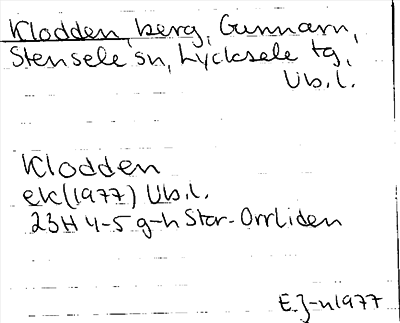 Klodden, berg, Gunnarn,
Stensele sn, Lycksele tg,
Vb.l.
Klodden
ek(1977) Vb.l.
23H 4-5 g-h Stor-Orrliden
E.J-n1977